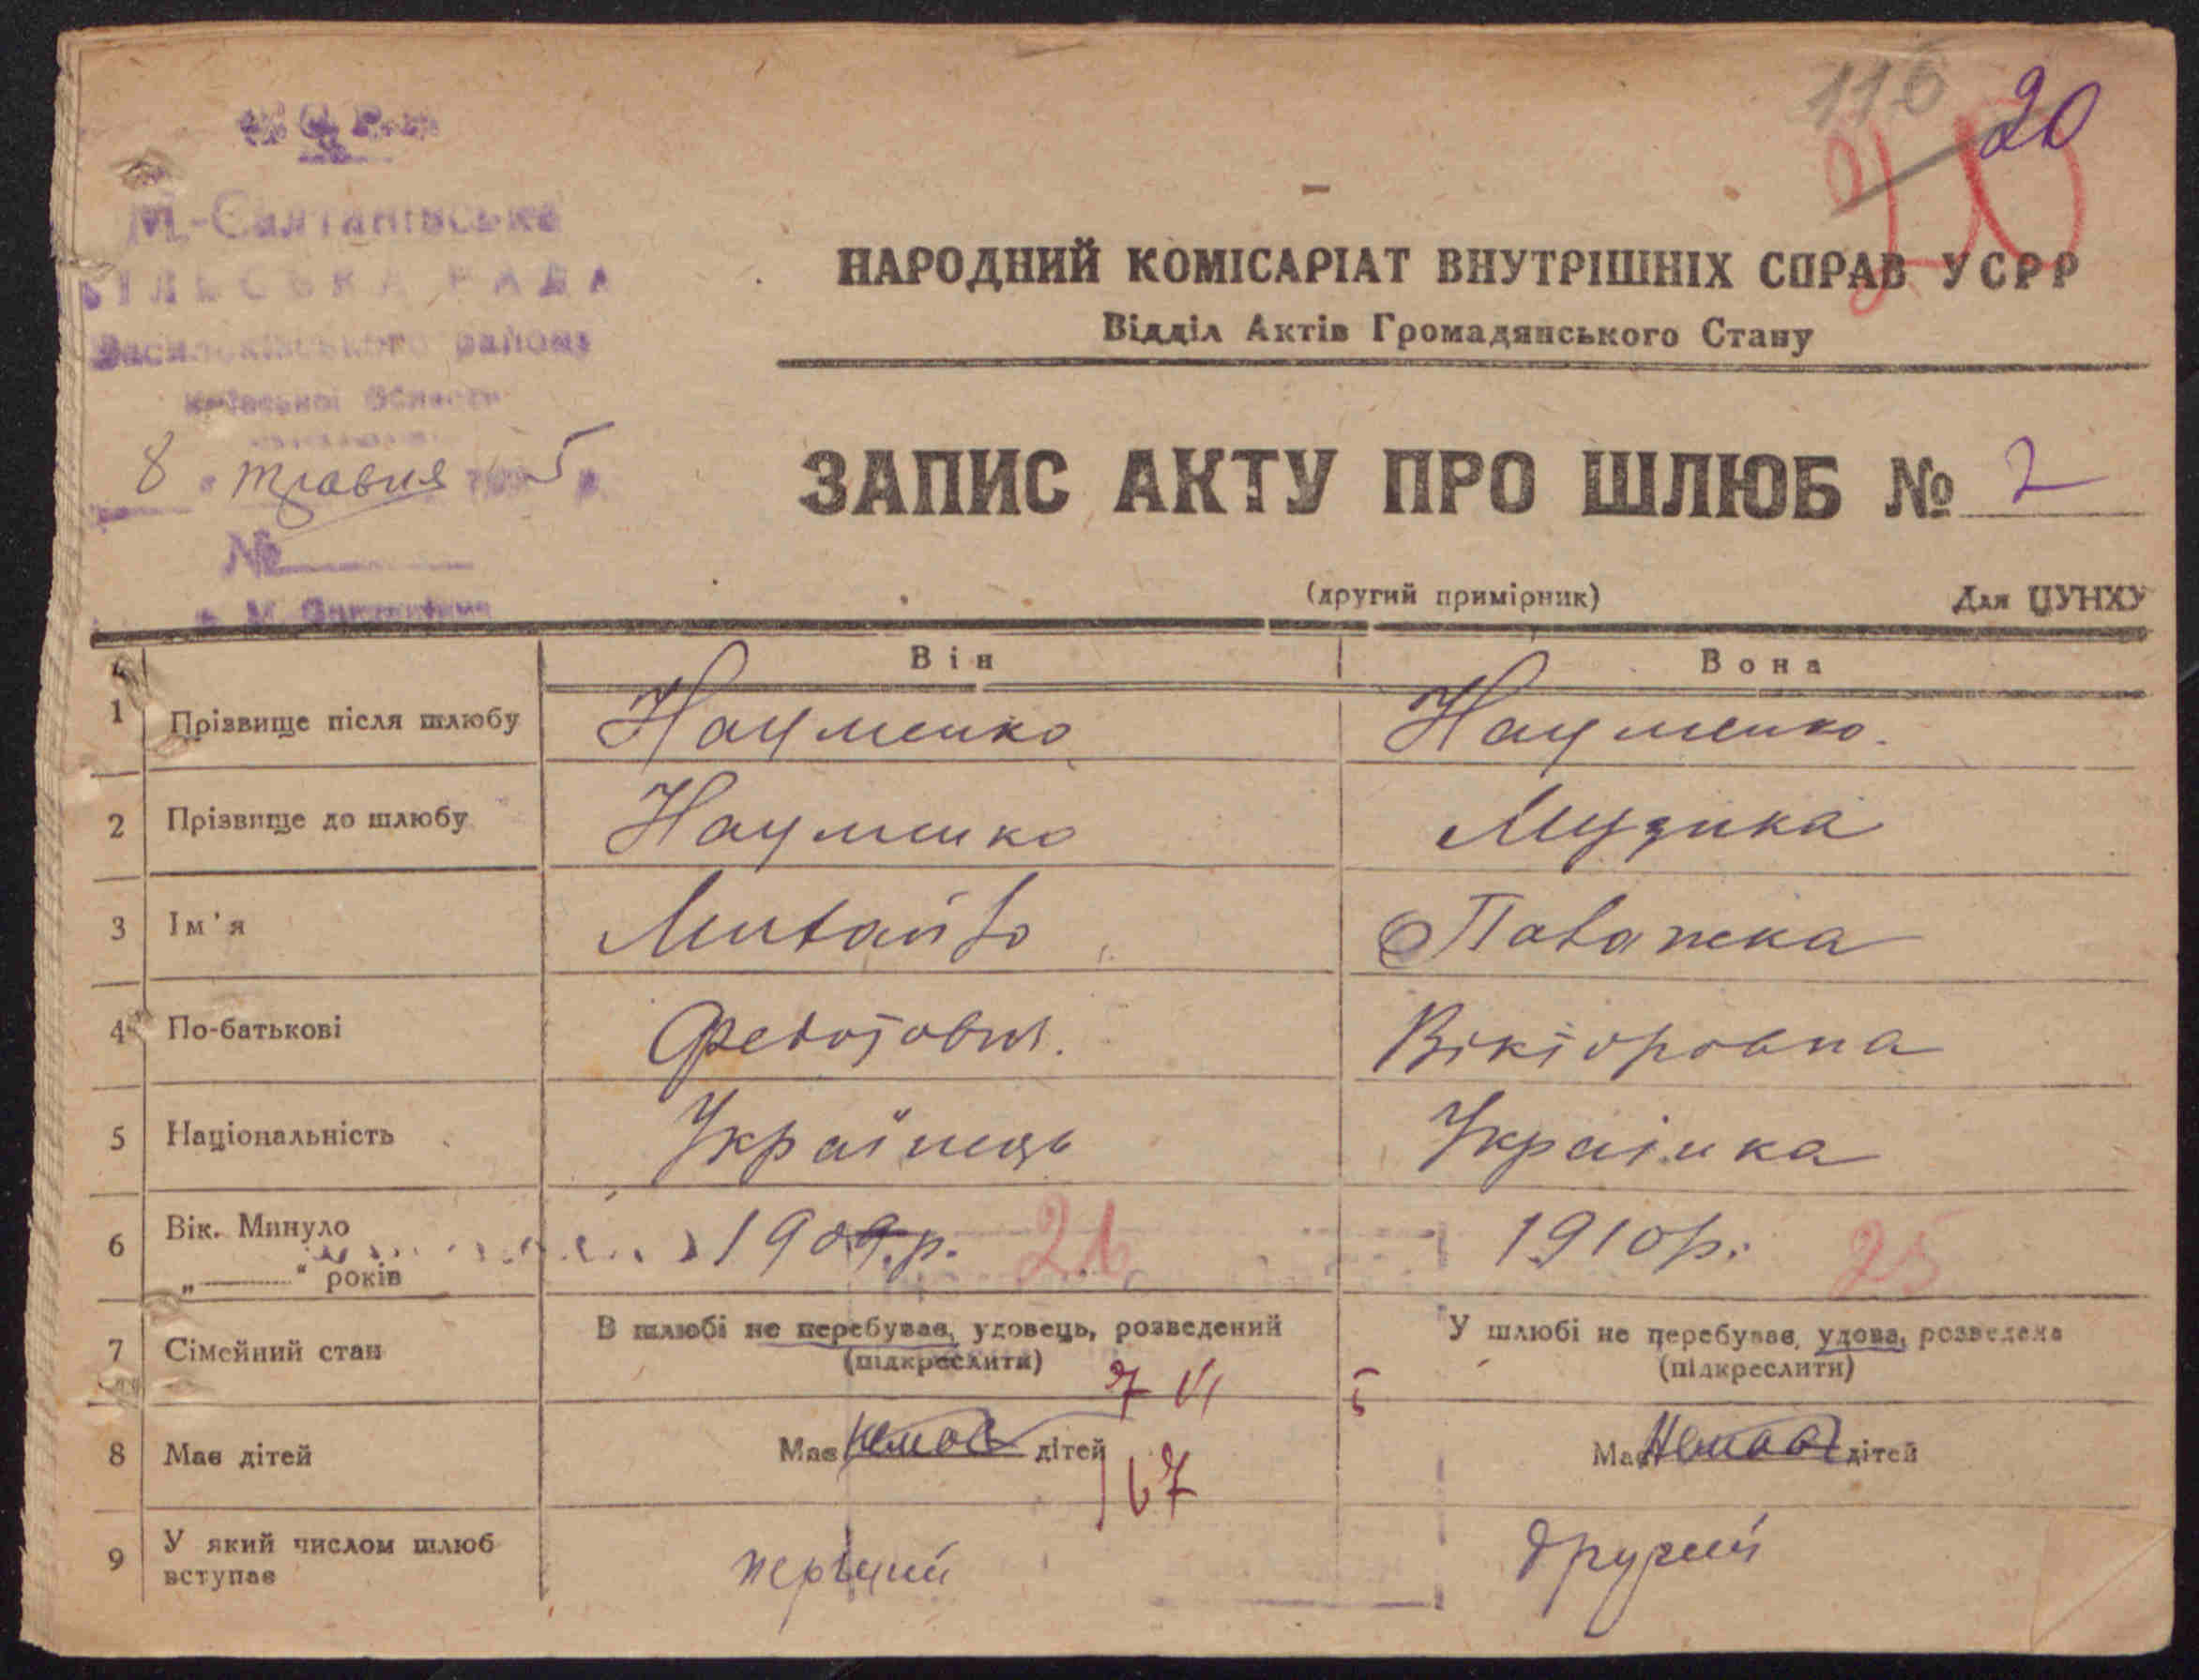 116 20
20
УСРР
М.-Салтанівська
СІЛЬСЬКА РАДА
Васильківського району
Київської Области
8 травня 1935 р.
№
НАРОДНИЙ КОМІСАРІАТ ВНУТРІШНІХ СПРАВ УСРР
Відділ Актів Громадянського Стану
ЗАПИС АКТУ ПРО ШЛЮБ № 2
(другий примірник) Для ЦУНХУ
Він Вона
1 Прізвище після шлюбу Науменко Науменко.
2 Прізвище до шлюбу Науменко Музика
3 Ім'я Михайло
4 По-батькові Федотович. Вікторовна
5 Національність Українець Украінка
6 Вік. Минуло 1909.р. 26 1910р. 25
„ “ років
7 Сімейний стан В шлюбі не перебував, удовець, розведений У шлюбі не перебував, удова, розведена
(підкреслити) (підкреслити)
7 VI 5
8 Має дітей Має немає дітей Має Немає дітей
67
9 У який числом шлюб вступає перший другий